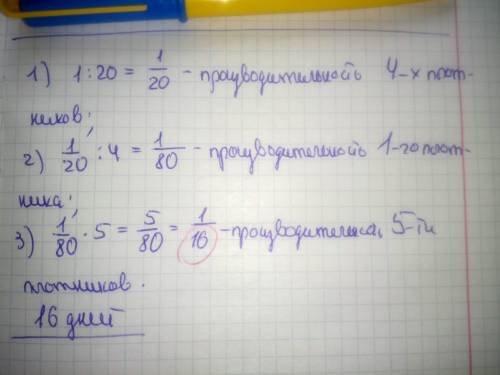 1) 1:20 = 1/20 - производительность 4-х плот-
ников;
2) 1/20 : 4 = 1/80 - производительность 1-го плот-
ника;
3) 1/80 · 5 = 5/80 = 1/16 - производительность 5-ти
плотников.
16 дней